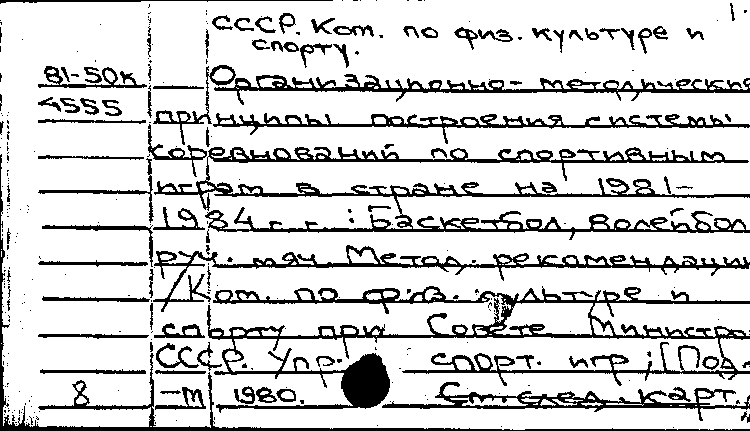 1.
СССР. Ком. по физ. культуре и
спорту.
81-50к Организационно-методические
4555 принципы построения системы
соревнований по спортивным
играм в стране на 1981-
1984 г.г.: Баскетбол, волейбол
руч. мяч. Метод. рекомендации
/Ком. по физ. культуре и
спорту при Совете Министро
СССР. Упр. спорт. игр; [Под-
8 -т 1980. См. след. карт.